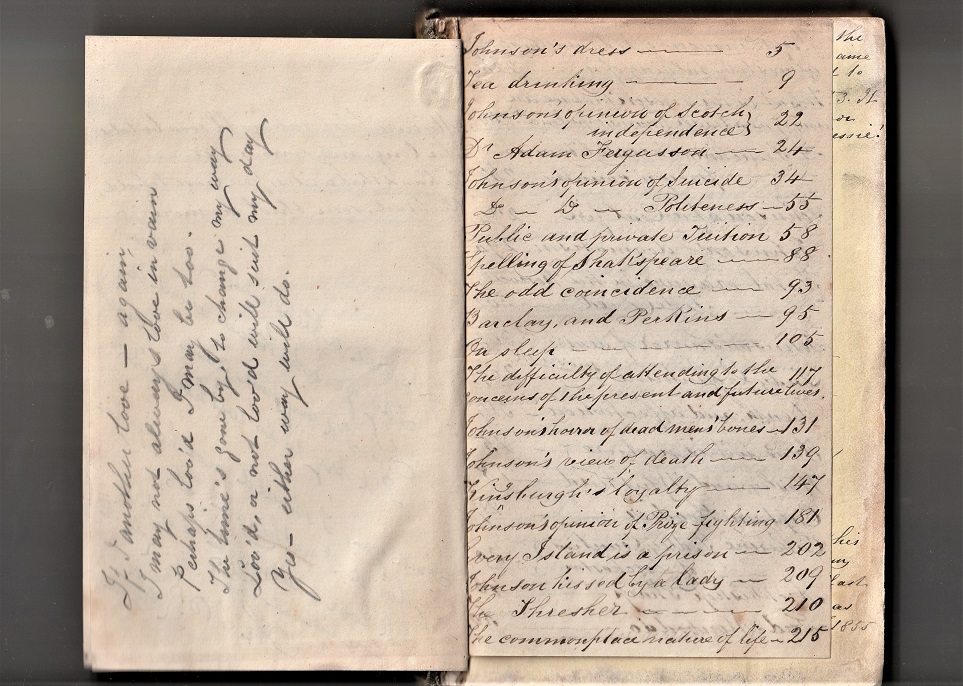 If I another love — again,
I may not always love in vain
Perhaps lov'd I may be too.
The time's gone by, to change my way
Lov'd, or not lov'd will suit my day
Yes — either way will do.
Johnson's dress — 5
Tea drinking — 9
Johnson's opinion of Scotch
independence} 22
Dr Adam Fergusson — 24
Johnson's opinion of Suicide 34
Do — Do — Politeness — 55
Public and private Tuition 58
Spelling of Shakspeare — 88
The odd coincidence — 93
Barclay, and Perkins — 95
On sleep — 105
The difficulty of attending to the 117
concerns of the present and future lives.
Johnson's horror of dead men's bones — 131
Johnson's view of death — 139
Kinsburgh's loyalty — 147
Johnson's opinion of Prize-fighting 181
Every Island is a prison — 202
Johnson kissed by a lady — 209
The Thresher — 210
The commonplace nature of life — 215
the
ame
to
or
essie!
his
last
as
1855